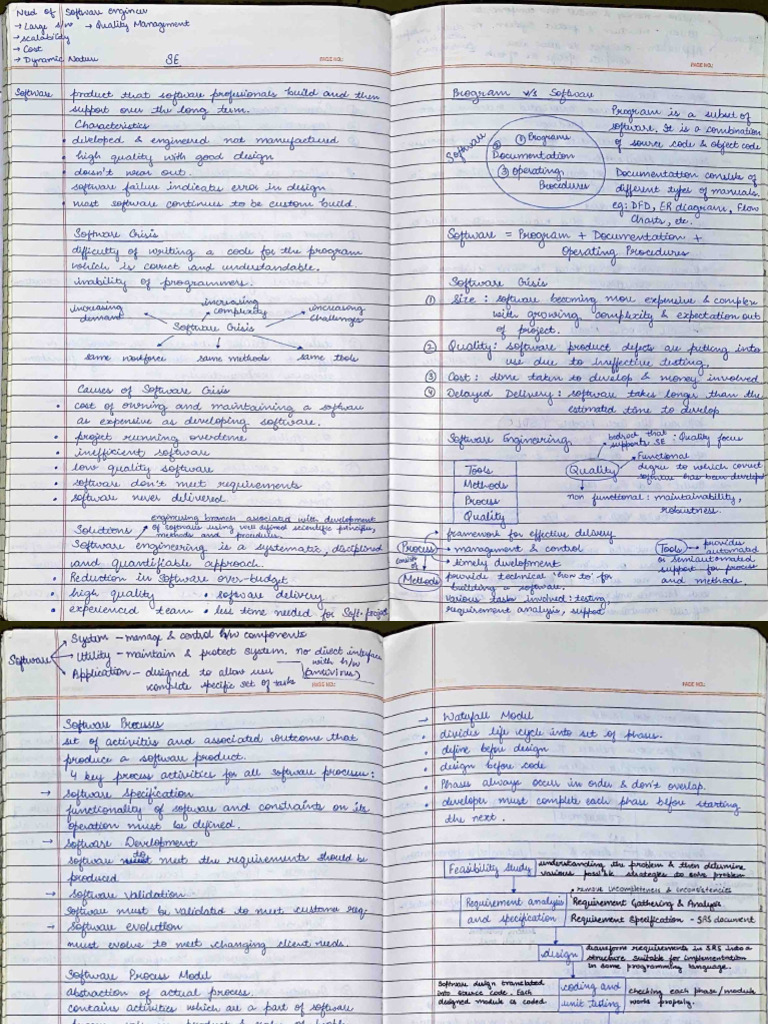 Need of Software Engineer
→ Large s/w → Quality Management
→ scalability
→ Cost
→ Dynamic Nature
SE
PAGE NO.:
Software product that software professionals build and then
support over the long term.
Characteristics
• developed & engineered not manufactured
• high quality with good design
• doesn't wear out.
software failure indicates error in design
• most software continues to be custom build.
Software Crisis
difficulty of writing a code for the program
which is correct and understandable.
inability of programmers.
increasing demand
increasing complexity
increasing challenges
Software Crisis
same workforce same methods same tools
Causes of Software Crisis
• cost of owning and maintaining a software
as expensive as developing software.
• project running overtime
• inefficient software
• low quality software
• software don't meet requirements
• software never delivered.
engineering branch associated with development
of software using well defined scientific principles,
methods and procedures.
Solutions
Software engineering is a systematic, disciplined
and quantifiable approach.
• Reduction in Software over-budget
• high quality • software delivery
• experienced team • less time needed for Soft. project
PAGE NO.:
Program v/s Software
Software
① Programs
② Documentation
③ Operating
Procedures
Program is a subset of
software. It is a combination
of source code & object code
Documentation consists of
different types of manuals.
eg: DFD, ER diagram, Flow
Charts, etc.
Software = Program + Documentation +
Operating Procedures
Software Crisis
① Size : software becoming more expensive & complex
with growing complexity & expectation out
of project.
② Quality : software product defects are putting into
use due to ineffective testing.
③ Cost : time taken to develop & money involved
④ Delayed Delivery : software takes longer than the
estimated time to develop
Software Engineering
bedrock that
supports SE : Quality focus
Tools
Methods
Process
Quality
Quality
Functional
degree to which correct
software has been developed
non functional : maintainability,
robustness.
Process
consists of
• framework for effective delivery
• management & control
• timely development
Tools
provides
automated
or semiautomated
support for process
and methods.
Methods
provide technical 'how to' for
building a software.
various tasks involved : testing,
requirement analysis, support
Software
System – manage & control h/w components
Utility – maintain & protect system. no direct interface
with h/w
(antivirus)
Application – designed to allow user
complete specific set of tasks
PAGE NO.:
Software Processes
set of activities and associated outcome that
produce a software product.
4 key process activities for all software processes:
→ software specification
functionality of software and constraints on its
operation must be defined.
→ software Development
software to meet the requirements should be
produced
→ software validation
software must be validated to meet customer req.
→ software evolution
must evolve to meet changing client needs.
Software Process Model
abstraction of actual process.
contains activities which are a part of software
PAGE NO.:
→ Waterfall Model
• divides life cycle into set of phases.
• define before design
• design before code
• Phases always occur in order & don't overlap.
• developer must complete each phase before starting
the next.
Feasibility study
understanding the problem & then determine
various possible strategies to solve problem
Requirement analysis
and specification
• remove incompleteness & inconsistencies
Requirement Gathering & Analysis
Requirement Specification - SRS document
design
transform requirements in SRS into a
structure suitable for implementation
in some programming language.
Software design translated
into source code. Each
designed module is coded
coding and
unit testing
checking each phase/module
works properly.